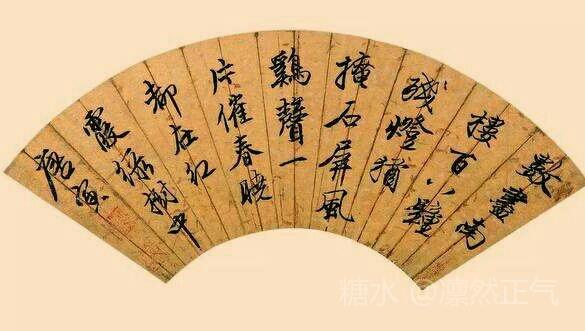 數盡南
樓百八鐘
殘燈猶
掩石屏風
鷄聲一
片催春曉
都在紅
霞綠樹中
唐寅
糖水 @凛然正气